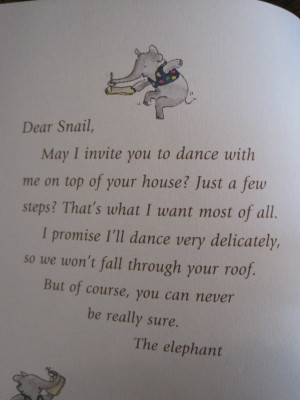 Dear Snail,
May I invite you to dance with
me on top of your house? Just a few
steps? That's what I want most of all.
I promise I'll dance very delicately,
so we won't fall through your roof.
But of course, you can never
be really sure.
The elephant